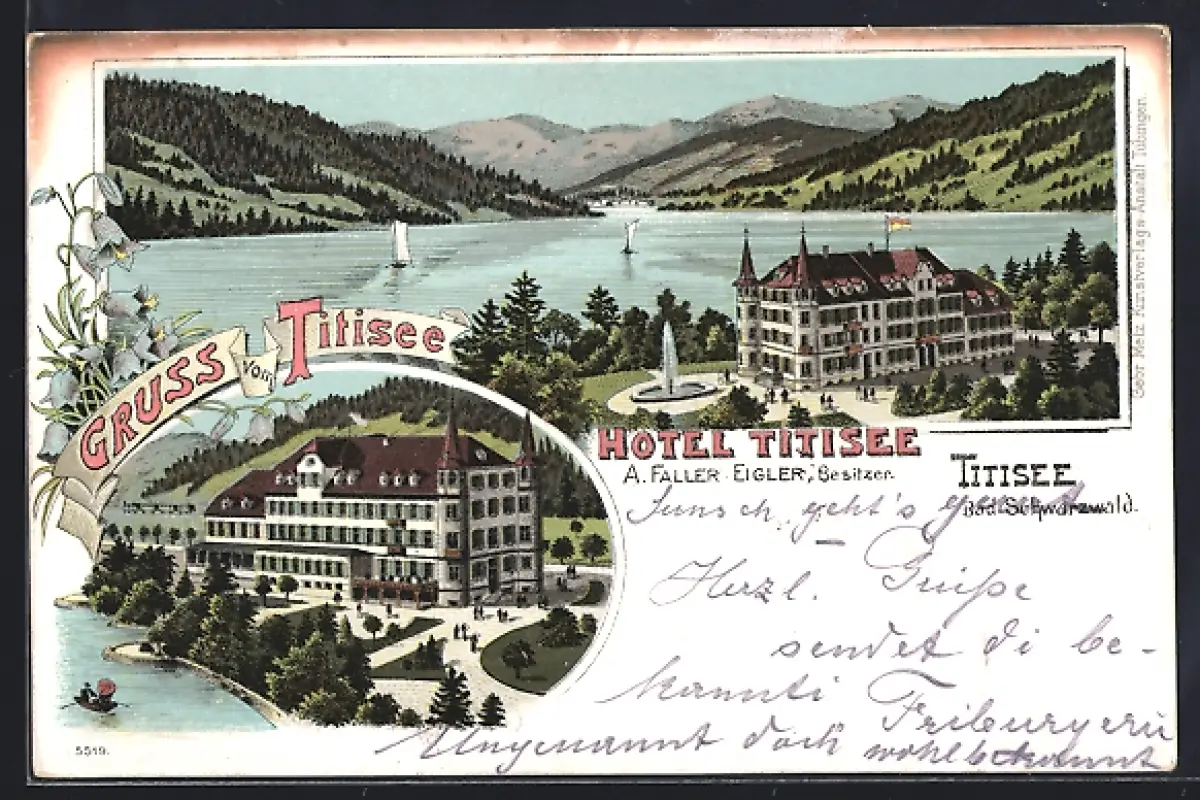 GRUSS vom Titisee
HOTEL TITISEE
A. FALLER-EIGLER, Besitzer.
TITISEE
bad. Schwarzwald.
Gebr Metz Kunstverlags-Anstalt Tübingen.
geht's
Herzl. Grüße
sendet di be-
kannti Friburgeri
Ungenannt doch wohlbekannt
5519.